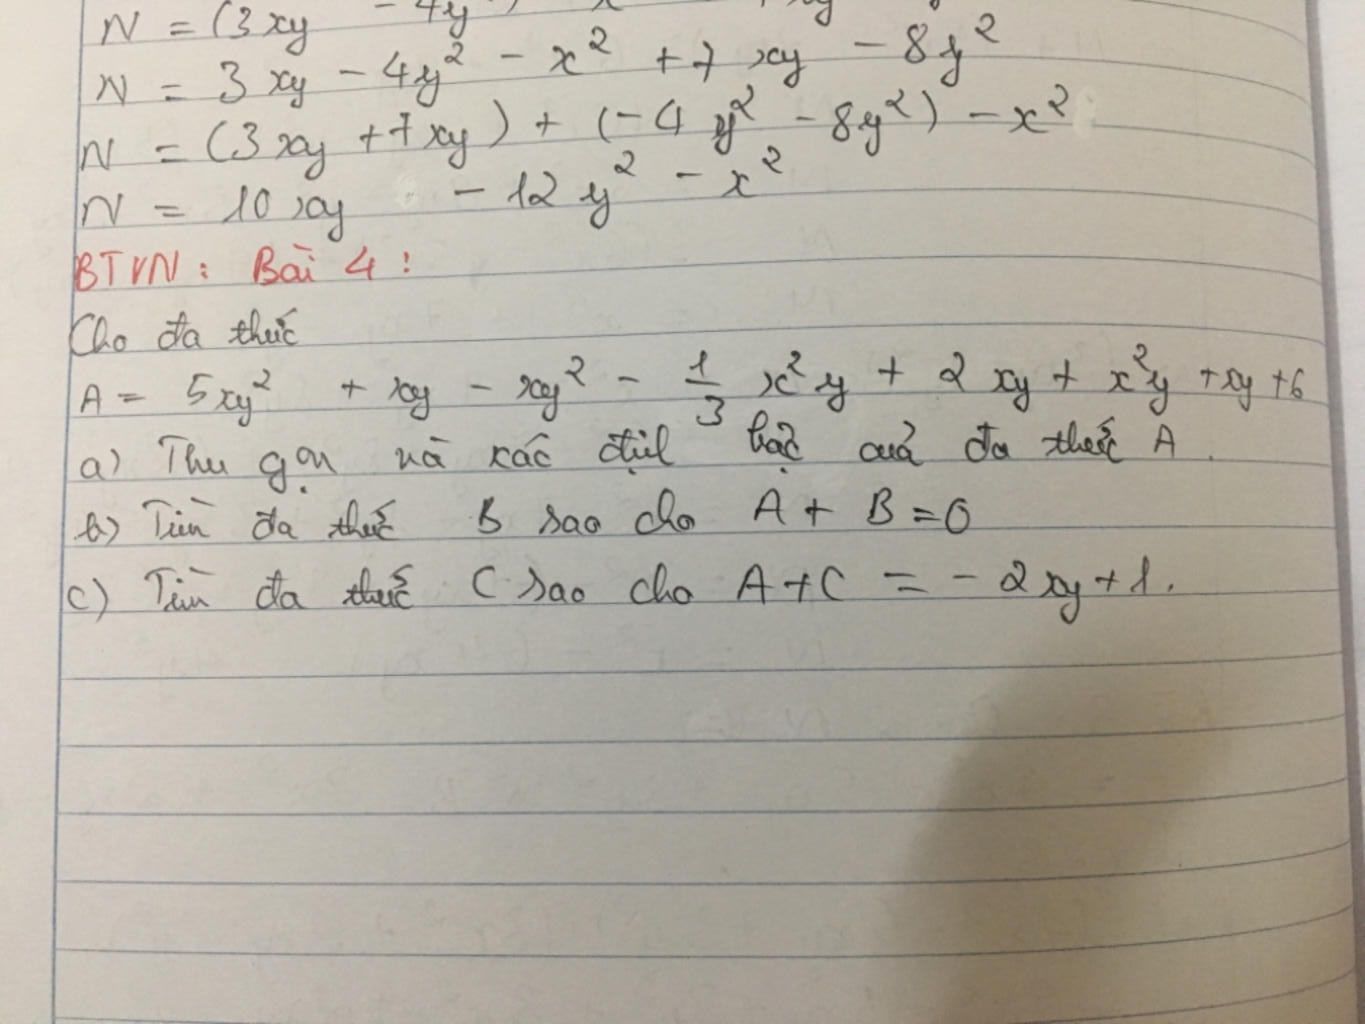 N = (3xy - 4y
N = 3xy - 4y² - x² + 7xy - 8y²
N = (3xy + 7xy) + (-4y² - 8y²) - x²
N = 10xy - 12y² - x²
BTVN: Bài 4:
Cho đa thức
A = 5xy² + xy - xy² - 1/3 x²y + 2xy + x²y + xy + 6
a) Thu gọn và xác định bậc của đa thức A.
b) Tìm đa thức B sao cho A + B = 0
c) Tìm đa thức C sao cho A + C = -2xy + 1.